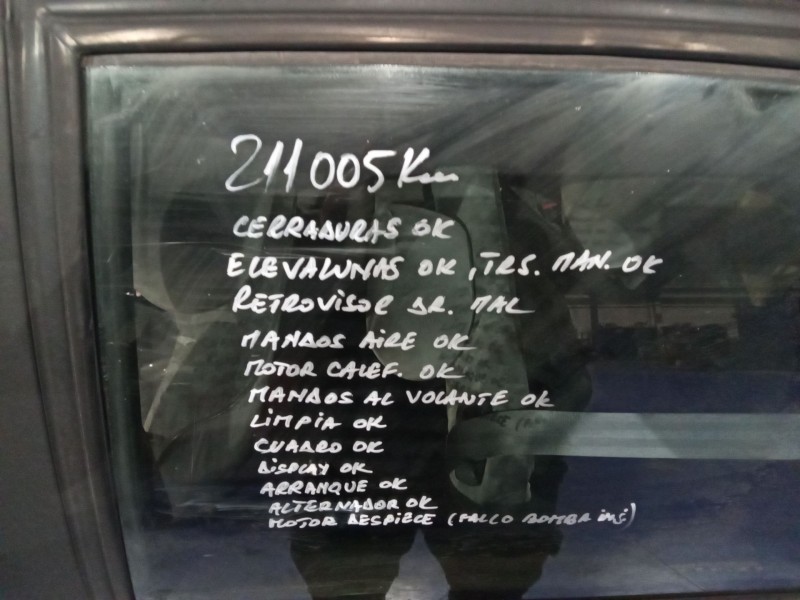 211005 Km
CERRADURAS OK
ELEVALUNAS OK, TRS. MAN. OK
RETROVISOR DR. MAL
MANDOS AIRE OK
MOTOR CALEF. OK
MANDOS AL VOLANTE OK
LIMPIA OK
CUADRO OK
DISPLAY OK
ARRANQUE OK
ALTERNADOR OK
MOTOR DESPIECE (FALLO BOMBA INY)